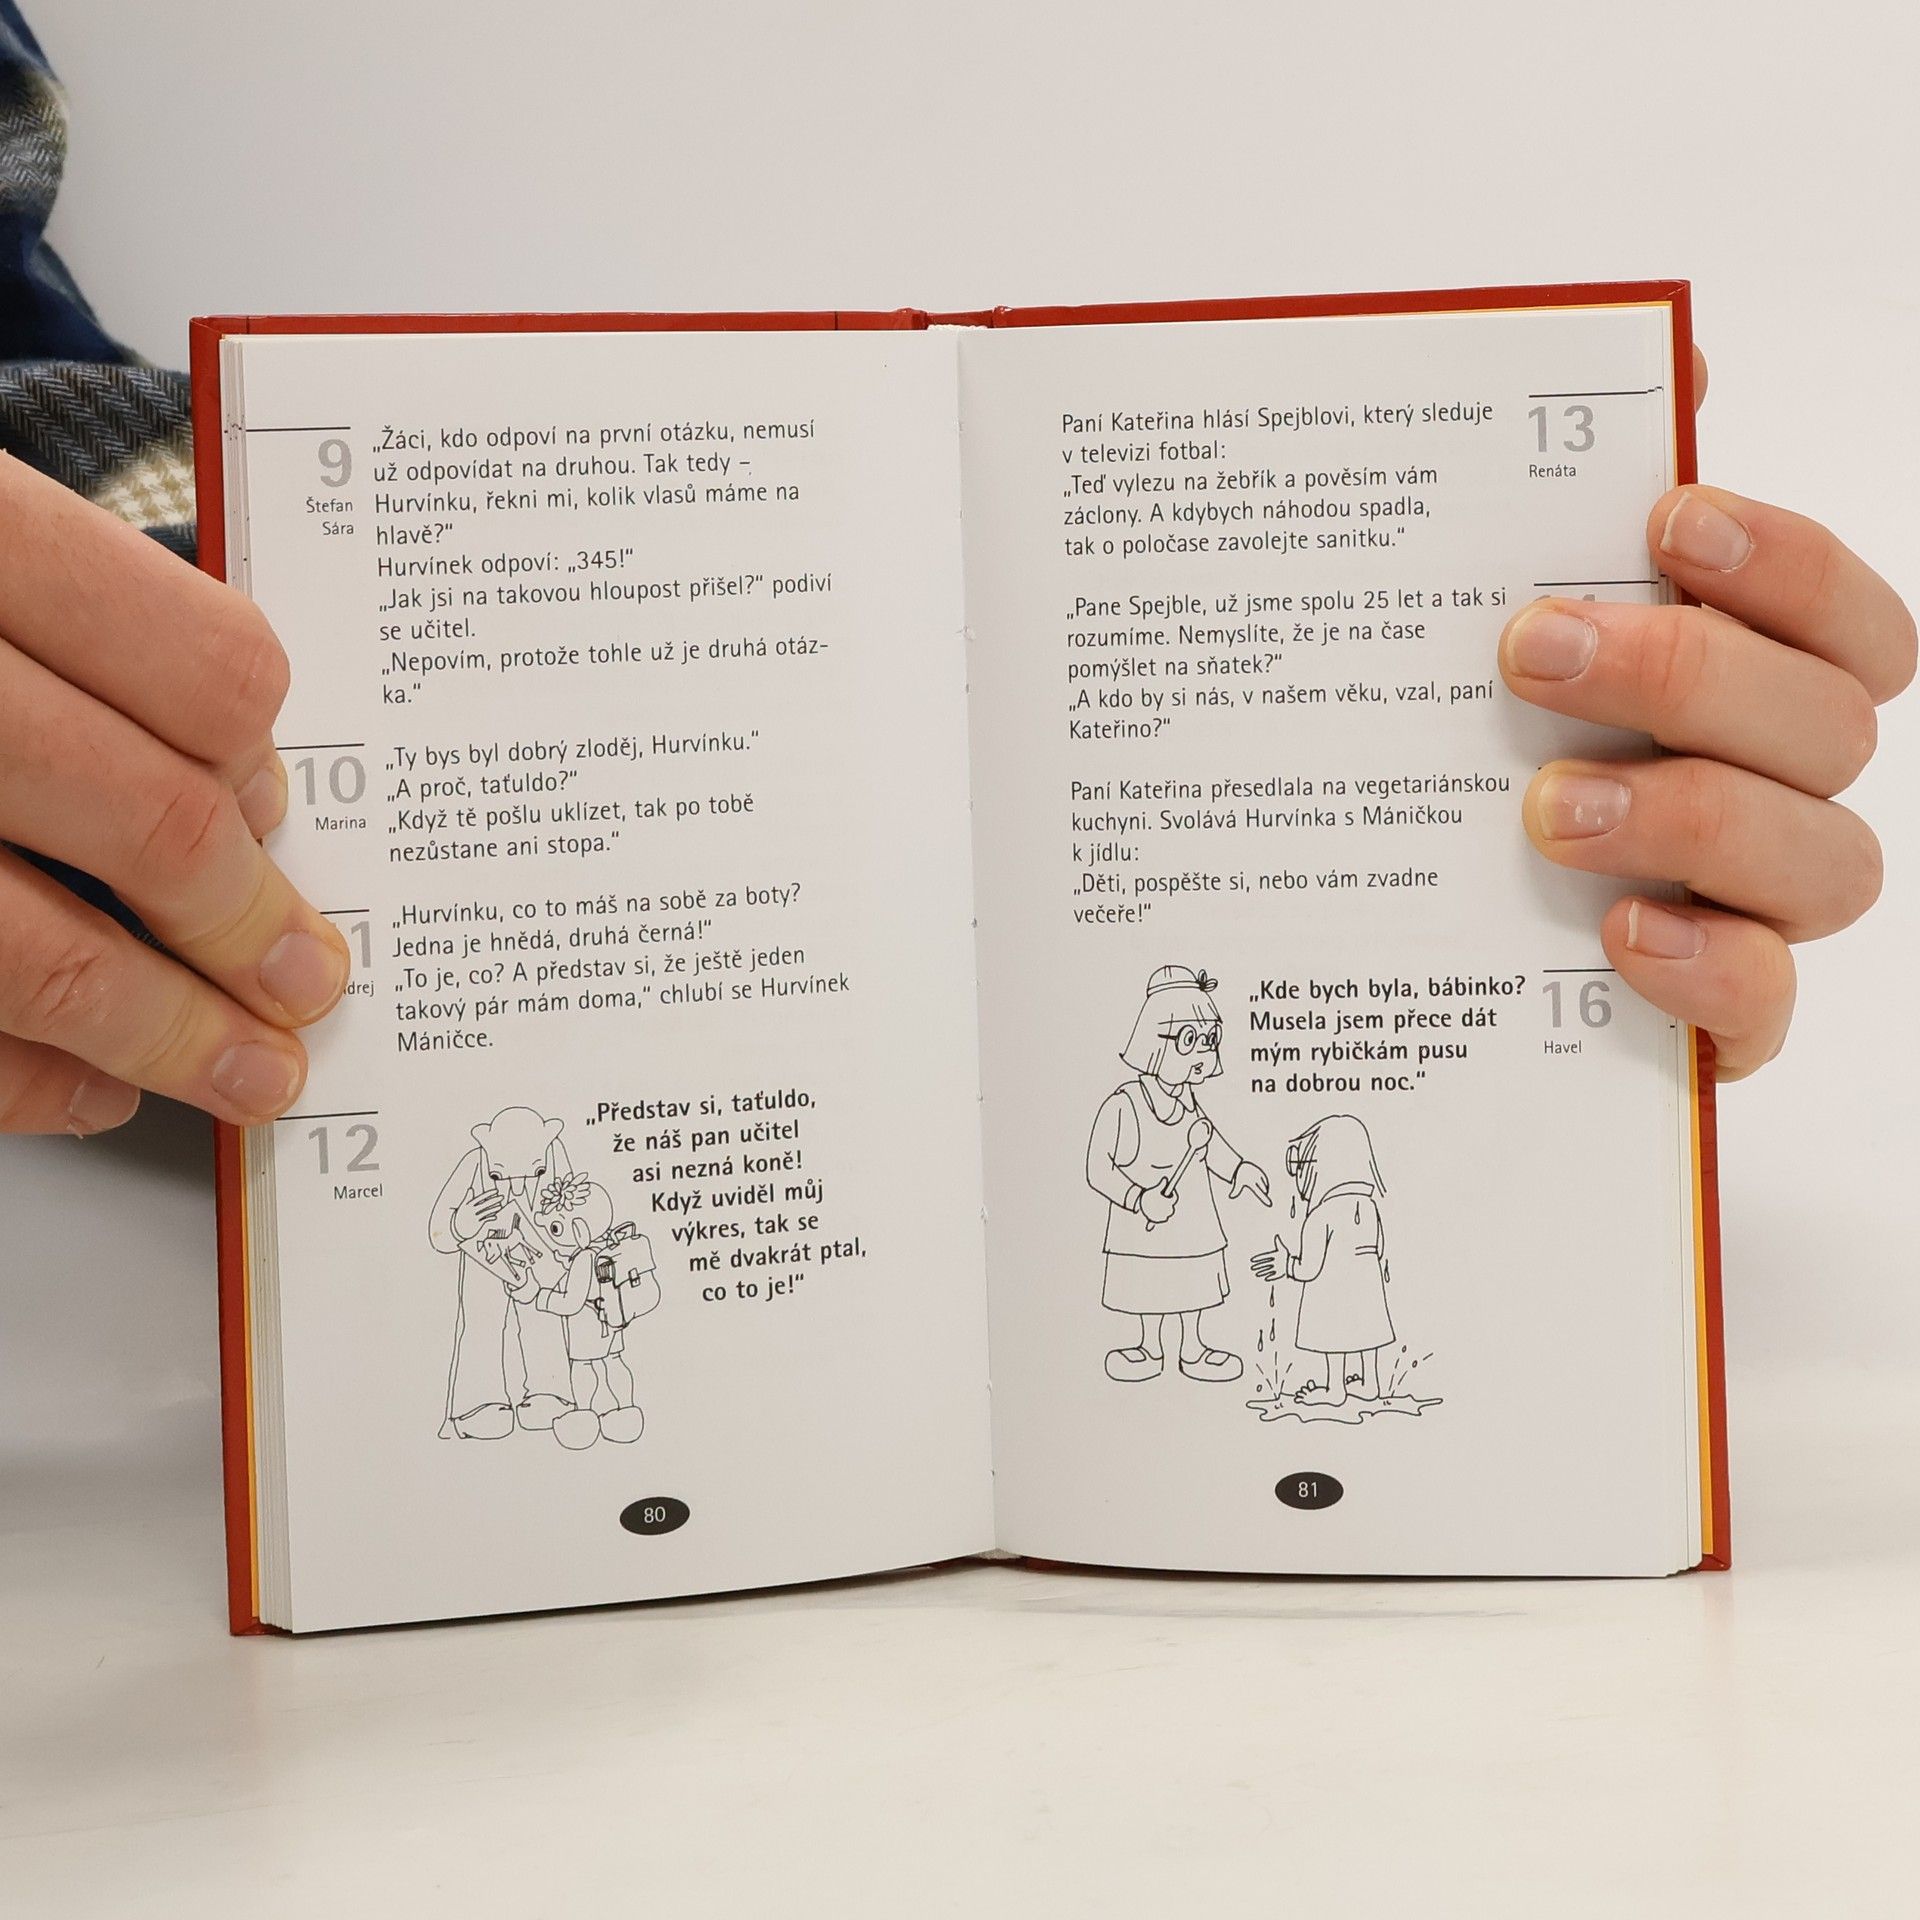 9
Štefan
Sára
„Žáci, kdo odpoví na první otázku, nemusí
už odpovídat na druhou. Tak tedy –
Hurvínku, řekni mi, kolik vlasů máme na
hlavě?“
Hurvínek odpoví: „345!“
„Jak jsi na takovou hloupost přišel?“ podiví
se učitel.
„Nepovím, protože tohle už je druhá otáz-
ka.“
10
Marina
„Ty bys byl dobrý zloděj, Hurvínku.“
„A proč, taťuldo?“
„Když tě pošlu uklízet, tak po tobě
nezůstane ani stopa.“
„Hurvínku, co to máš na sobě za boty?
Jedna je hnědá, druhá černá!“
„To je, co? A představ si, že ještě jeden
takový pár mám doma,“ chlubí se Hurvínek
Máničce.
12
Marcel
„Představ si, taťuldo,
že náš pan učitel
asi nezná koně!
Když uviděl můj
výkres, tak se
mě dvakrát ptal,
co to je!“
80
13
Renáta
Paní Kateřina hlásí Spejblovi, který sleduje
v televizi fotbal:
„Teď vylezu na žebřík a pověsím vám
záclony. A kdybych náhodou spadla,
tak o poločase zavolejte sanitku.“
„Pane Spejble, už jsme spolu 25 let a tak si
rozumíme. Nemyslíte, že je na čase
pomýšlet na sňatek?“
„A kdo by si nás, v našem věku, vzal, paní
Kateřino?“
Paní Kateřina přesedlala na vegetariánskou
kuchyni. Svolává Hurvínka s Máničkou
k jídlu:
„Děti, pospěšte si, nebo vám zvadne
večeře!“
16
Havel
„Kde bych byla, bábinko?
Musela jsem přece dát
mým rybičkám pusu
na dobrou noc.“
81